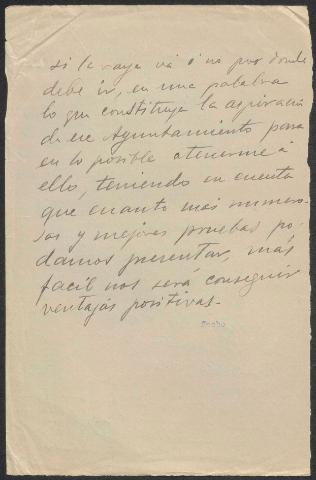 si la raya vá ó no por donde
debe ir, en una palabra
lo que constituya la aspiración
de ese Ayuntamiento para
en lo posible atenerme á
ello, teniendo en cuenta
que cuanto más numero-
sas y mejores pruebas po-
damos presentar, más
facil nos será conseguir
ventajas positivas.-